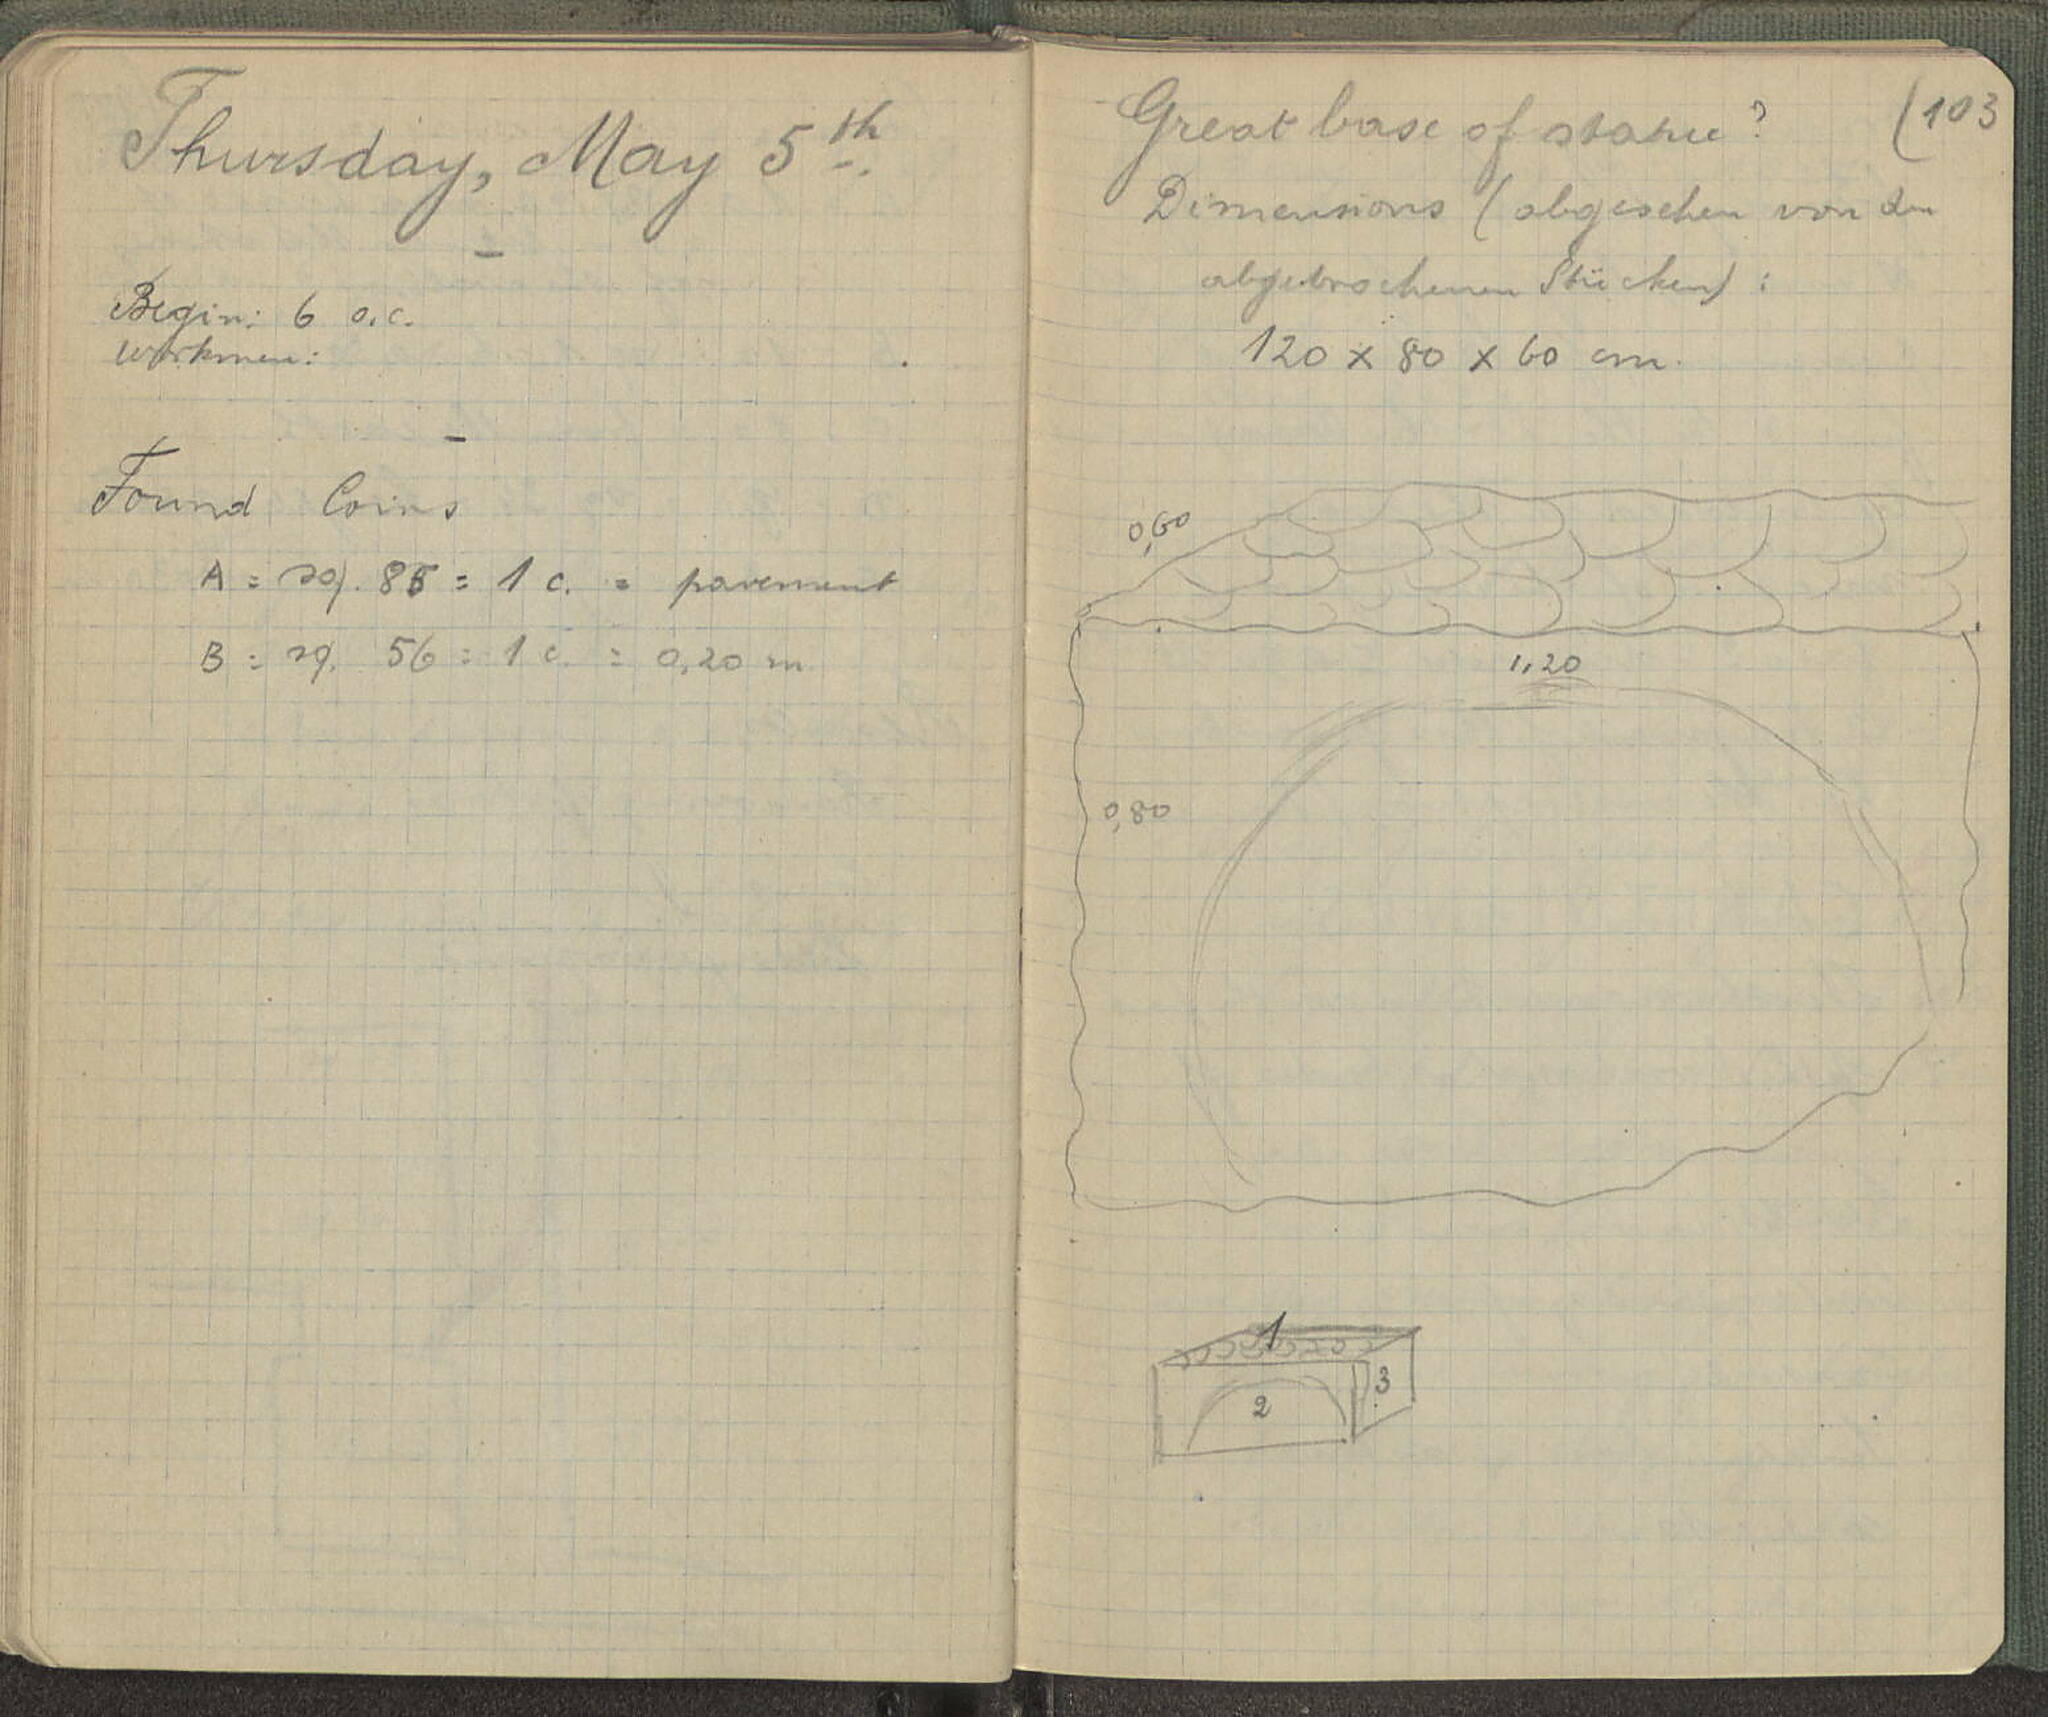 Thursday, May 5th.
Begin: 6 o.c.
workmen:
Found Coins
A = sq. 85 = 1 c. = pavement
B = sq. 56 = 1 c. = 0,20 m
Great base of statue?
(103
Dimensions (abgesehen von den
abgebrochenen Stücken):
120 x 80 x 60 cm.
0,60
1,20
0,80
1
2
3